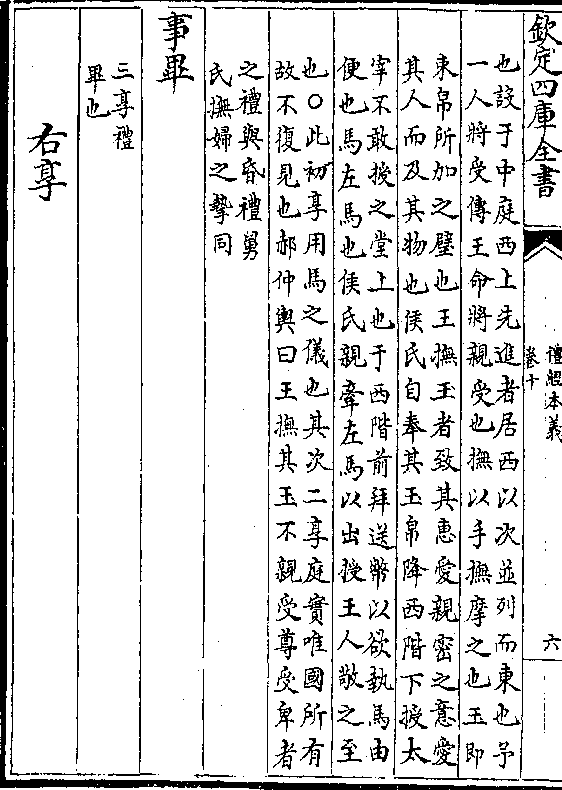 欽定四庫全書
禮經本義
卷十
六
也設于中庭西上先進者居西以次並列而東也予
一人將受傳王命將親受也撫以手撫摩之也玉即
束帛所加之璧也王撫玉者致其惠愛親密之意愛
其人而及其物也侯氏自奉其玉帛降西階下授太
宰不敢授之堂上也于西階前拜送幣以欲執馬由
便也馬左馬也侯氏親牽左馬以出授王人敬之至
也○此初享用馬之儀也其次二享庭實唯國所有
故不復見也郝仲輿曰王撫其玉不親受尊受卑者
之禮與昏禮舅
氏撫婦之摯同
事畢
三享禮
畢也
右享